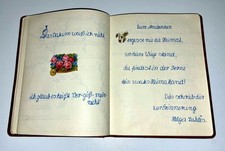 Das Datum weiß ich nicht
ich glaub es heißt Ver-giß-mein-
nicht!
Zum Andenken
Vergesse nie die Heimat,
wo deine Wiege stand,
du findest in der Ferne
kein zweites Heimatland!
Dies schrieb dir
zur Erinnerung
Helga